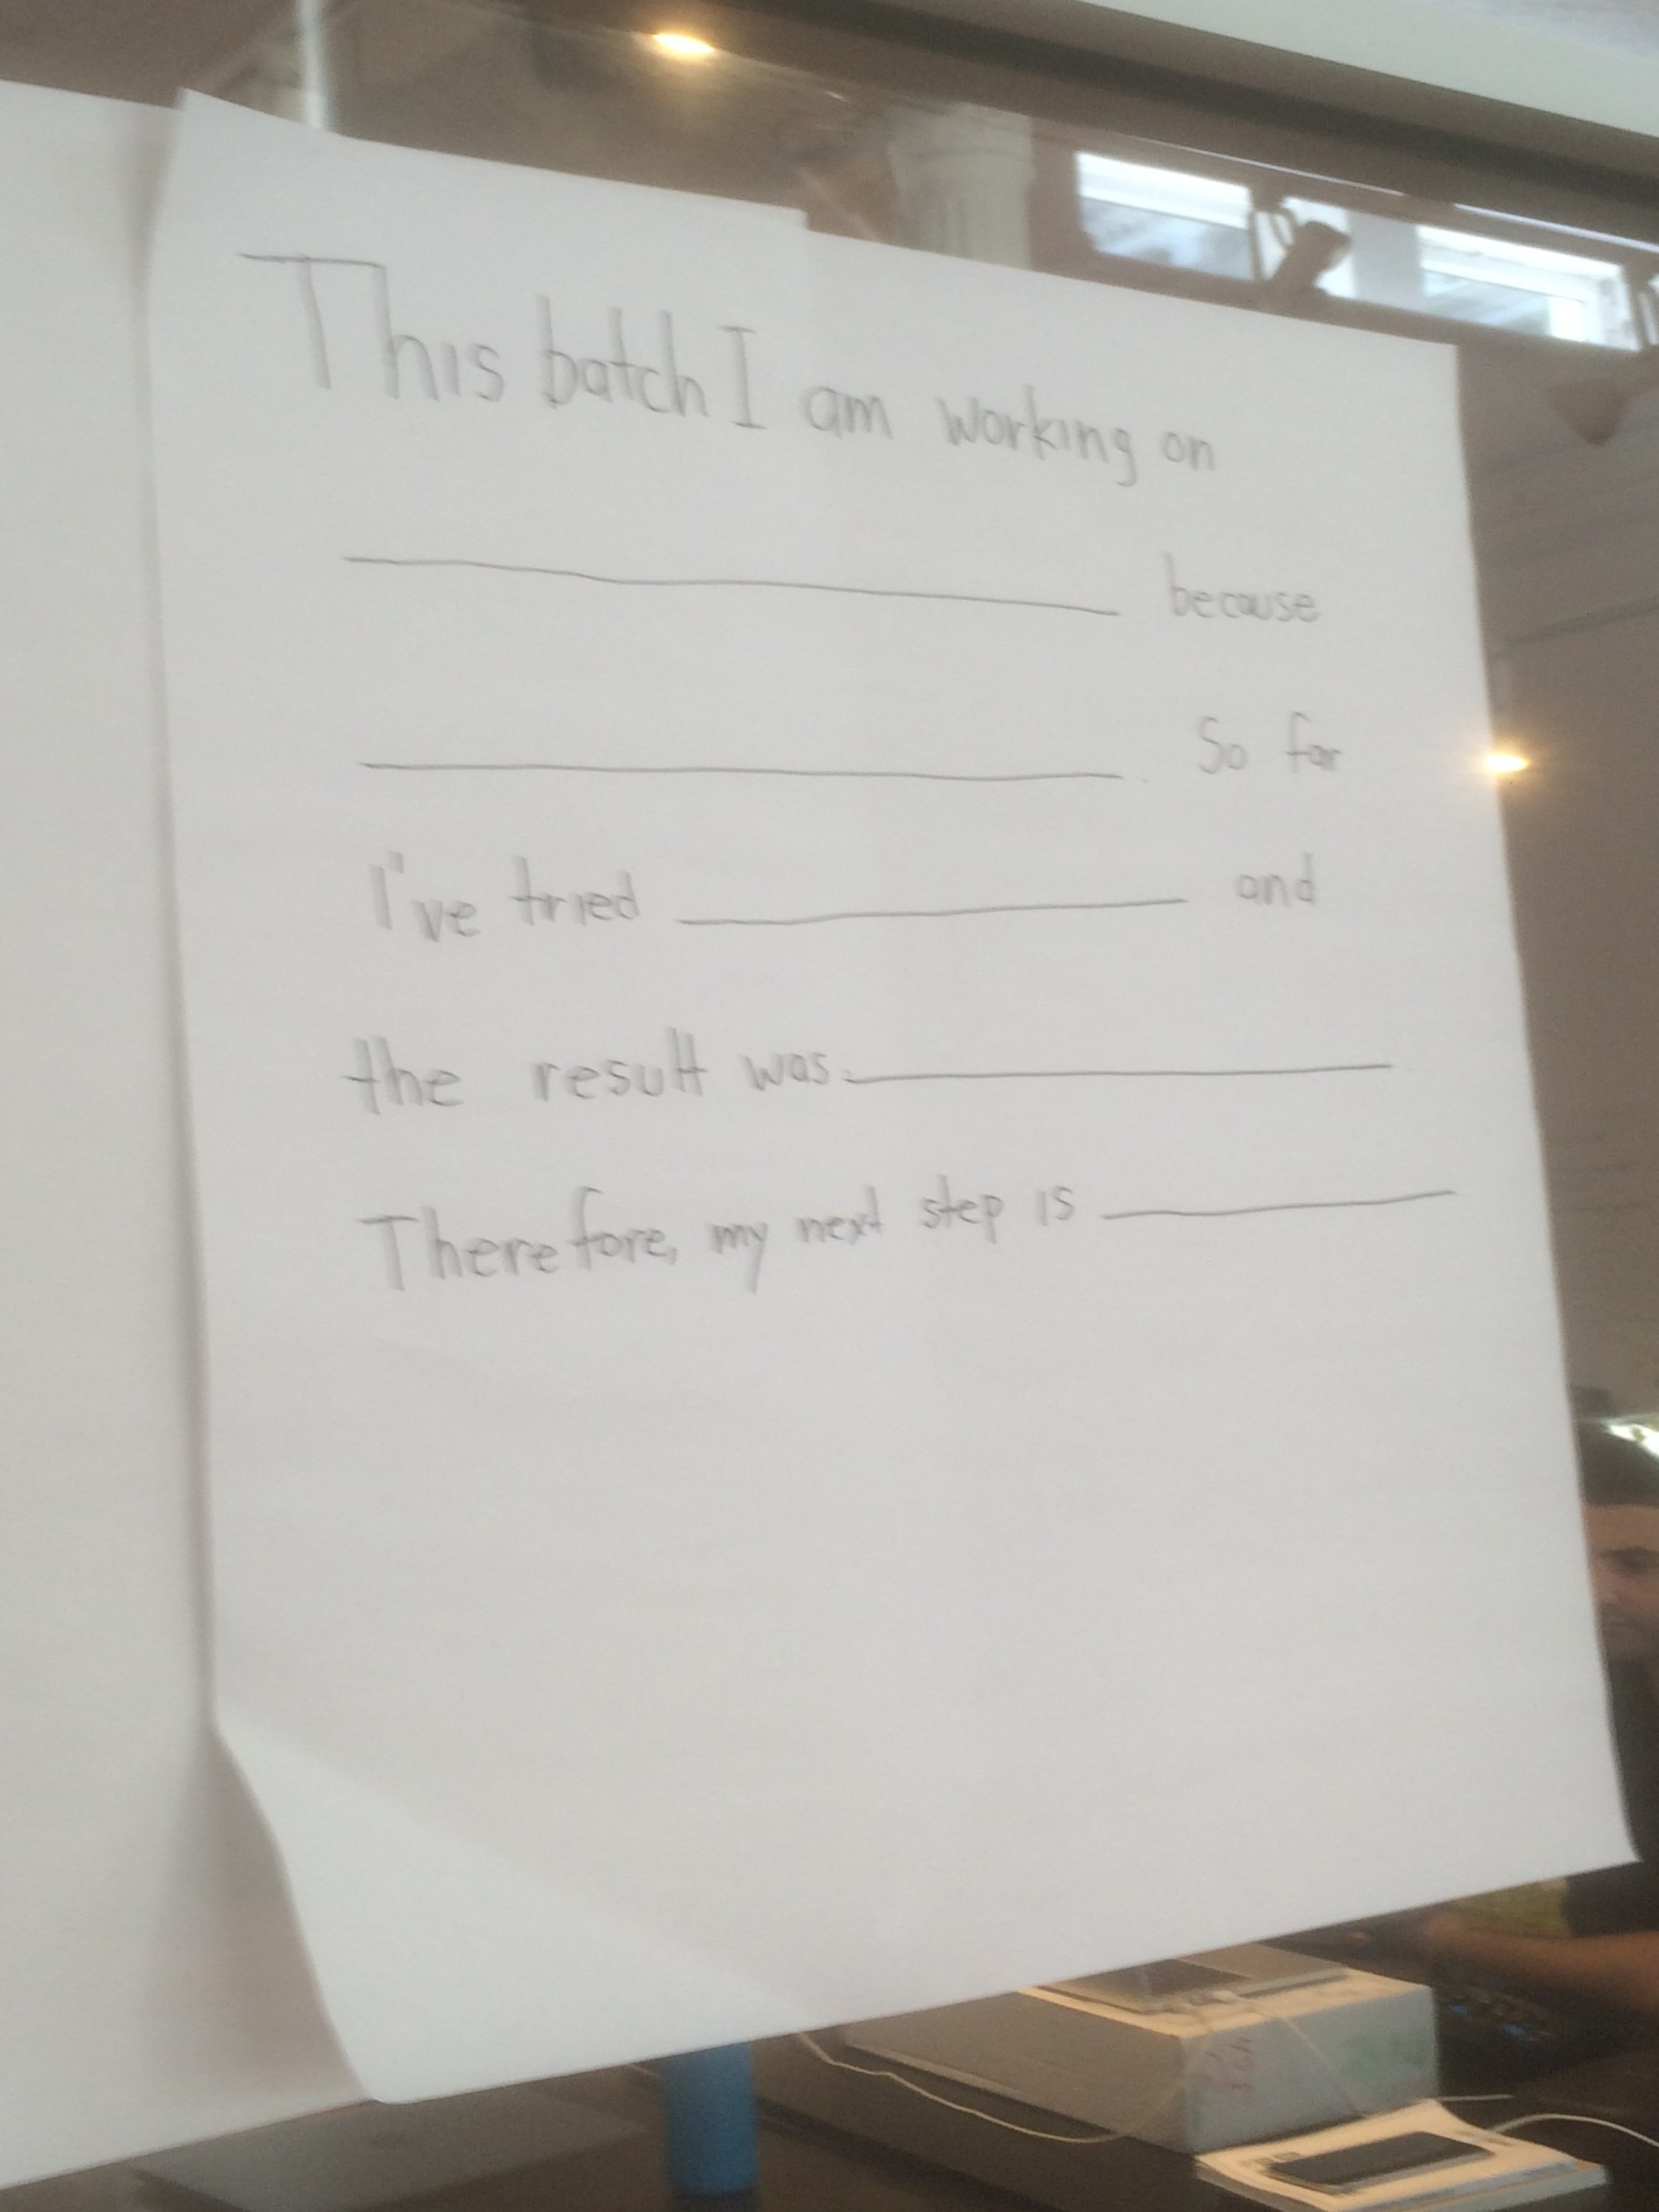 This batch I am working on
__________ because
__________. So far
I've tried __________ and
the result was __________
Therefore, my next step is __________